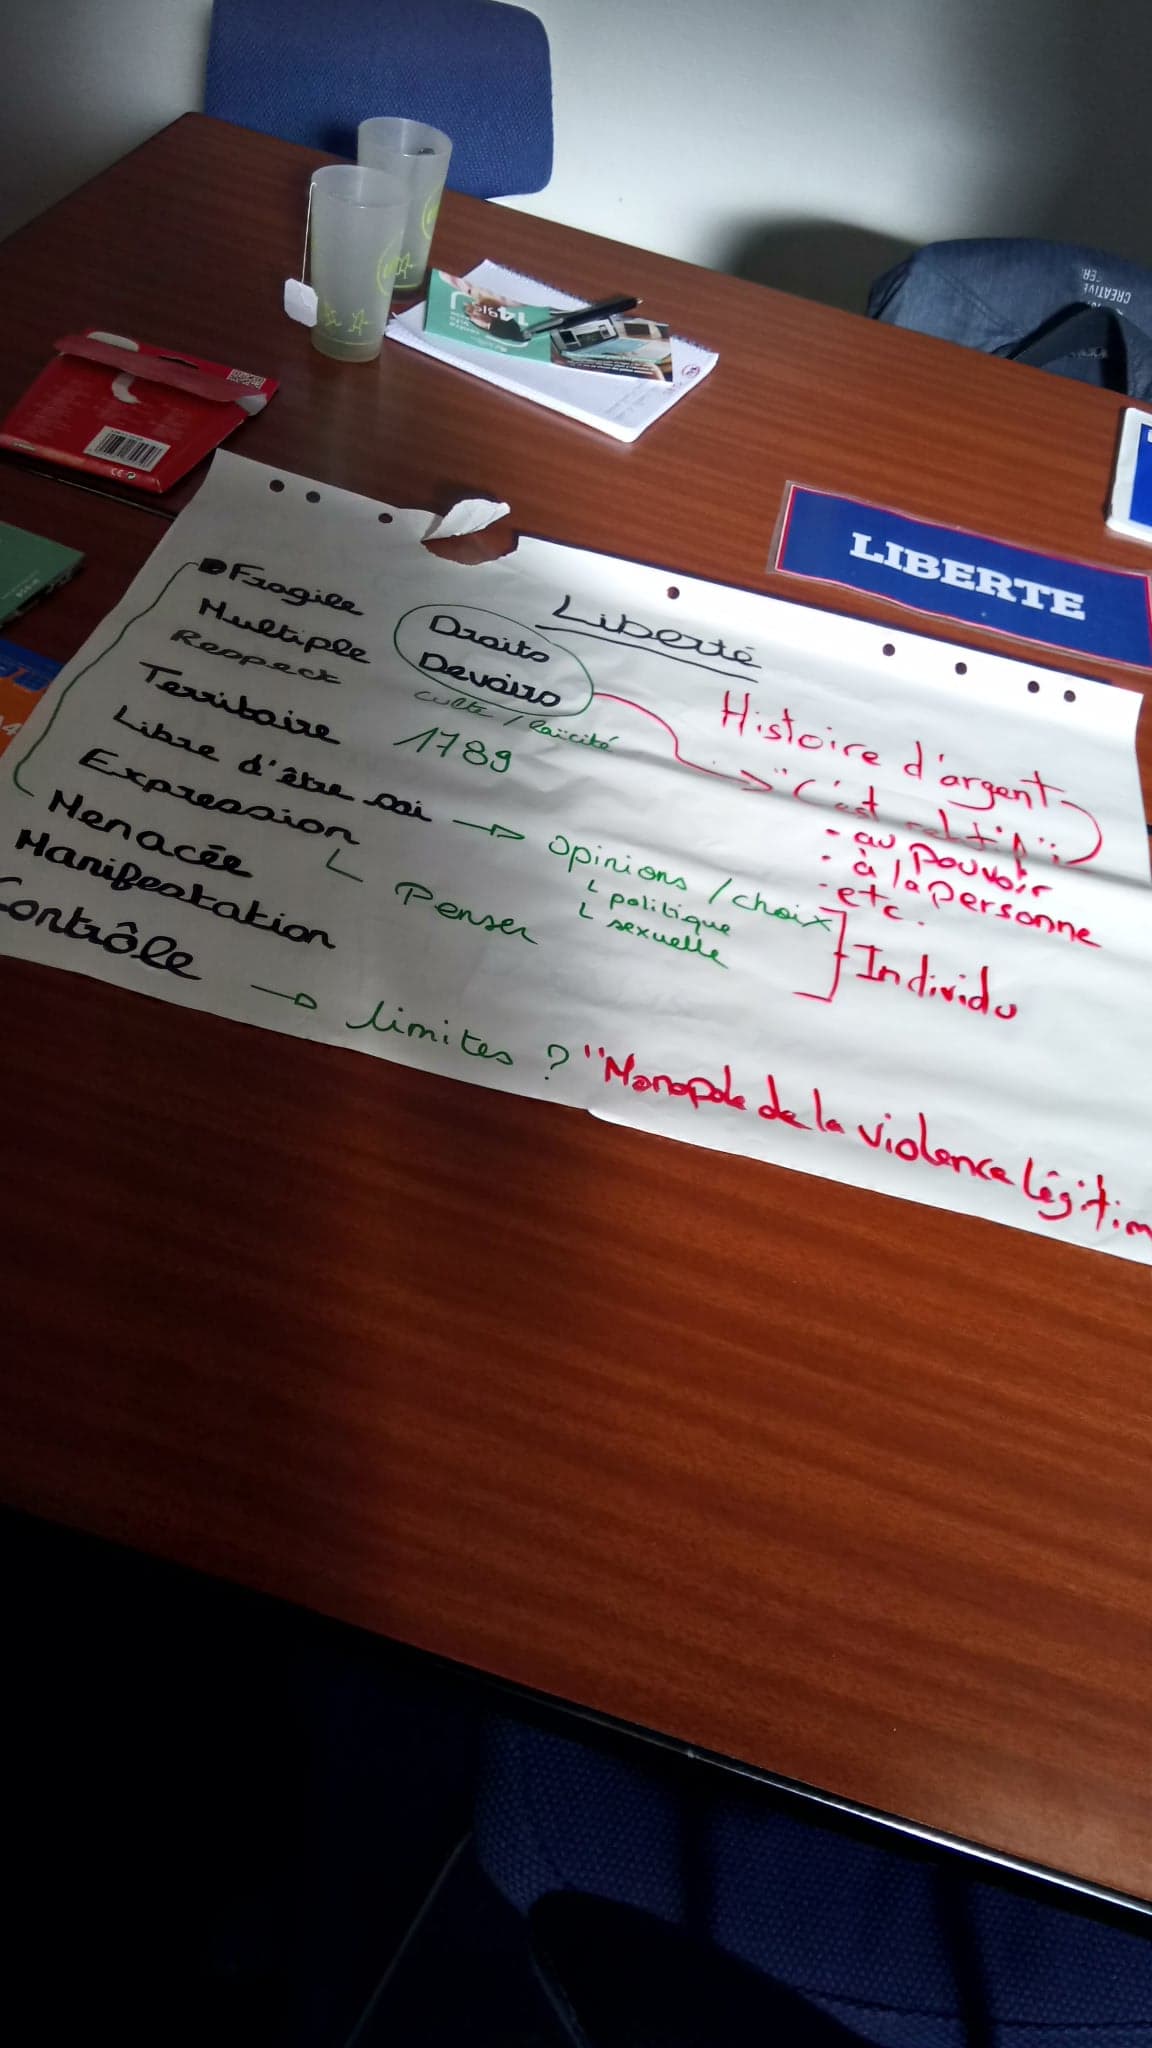 LIBERTE
Liberté
Fragile
Multiple
Respect
Territoire
Libre d'être soi
Expression
Menacée
Manifestation
Contrôle
Droits
Devoirs
culte / laïcité
1789
→ opinions / choix
politique
sexuelle
Penser
→ limites ?
Histoire d'argent
"C'est relatif":
- au pouvoir
- à la personne
- etc.
Individu
"Monopole de la violence légitim
14
CREATIVE